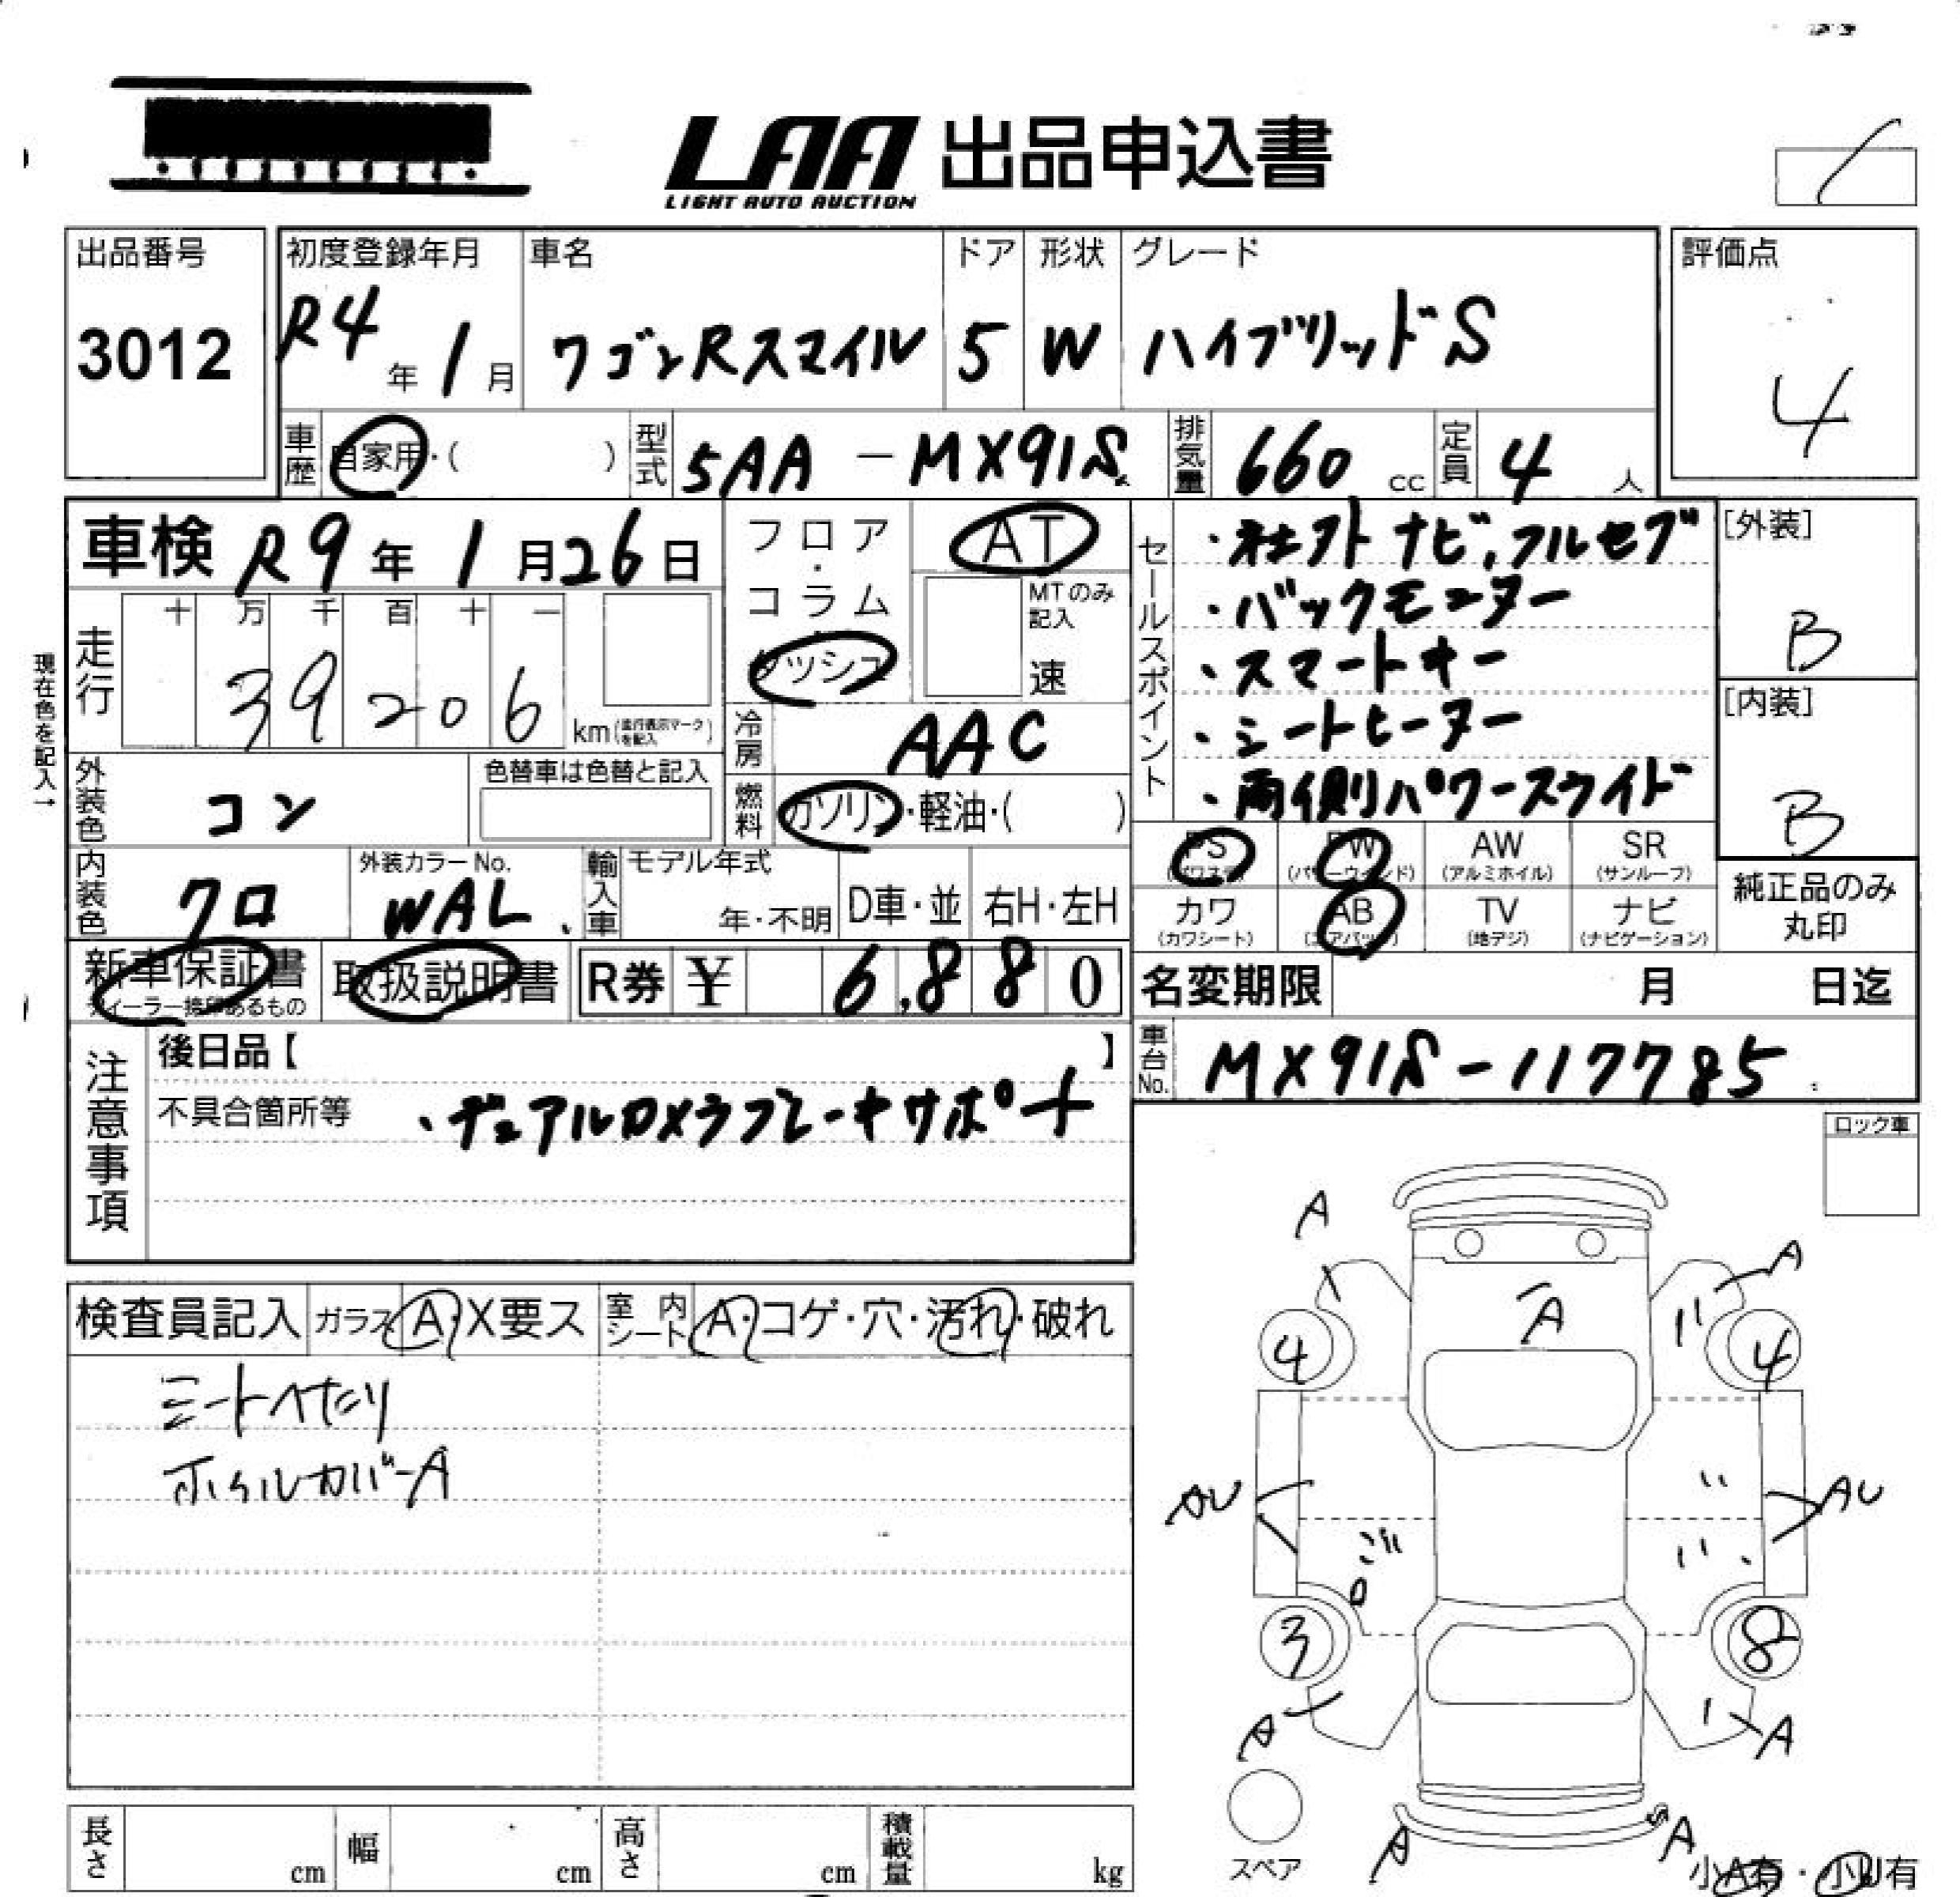 LAA 出品申込書
LIGHT AUTO AUCTION
出品番号
3012
初度登録年月
R4年1月
車名
ワゴンRスマイル
ドア
5
形状
W
グレード
ハイブリッドS
評価点
4
車歴
自家用・( )
型式
5AA-MX91S
排気量
660 cc
定員
4人
車検 R9年1月26日
フロア・コラム
ダッシュ
AT
MTのみ記入
速
セールスポイント
・社外ナビ,フルセグ
・バックモニター
・スマートキー
・シートヒーター
・両側パワースライド
[外装]
B
[内装]
B
現在色を記入→
走行
十 万 千 百 十 一
39206
km(走行表示マークを記入)
冷房
AAC
外装色
コン
色替車は色替と記入
燃料
ガソリン・軽油・( )
PS
(パワステ)
PW
(パワーウインド)
AW
(アルミホイル)
SR
(サンルーフ)
カワ
(カワシート)
AB
(エアバッグ)
TV
(地デジ)
ナビ
(ナビゲーション)
純正品のみ
丸印
内装色
クロ
外装カラーNo.
WAL
輸入車
モデル年式
年・不明
D車・並
右H・左H
新車保証書
ディーラー捺印あるもの
取扱説明書
R券 ¥ 6,880
名変期限 月 日迄
車台No.
MX91S-117785
注意事項
後日品【 】
不具合箇所等 ・デュアルカメラブレーキサポート
ロック車
検査員記入
ガラス A・X要ス
室内シート A・コゲ・穴・汚れ・破れ
シートヘたり
ホイルカバーA
A
A
A
4
4
AU
AU
3
8
A
A
A
A
スペア
小A有・小U有
長さ cm
幅 cm
高さ cm
積載量 kg